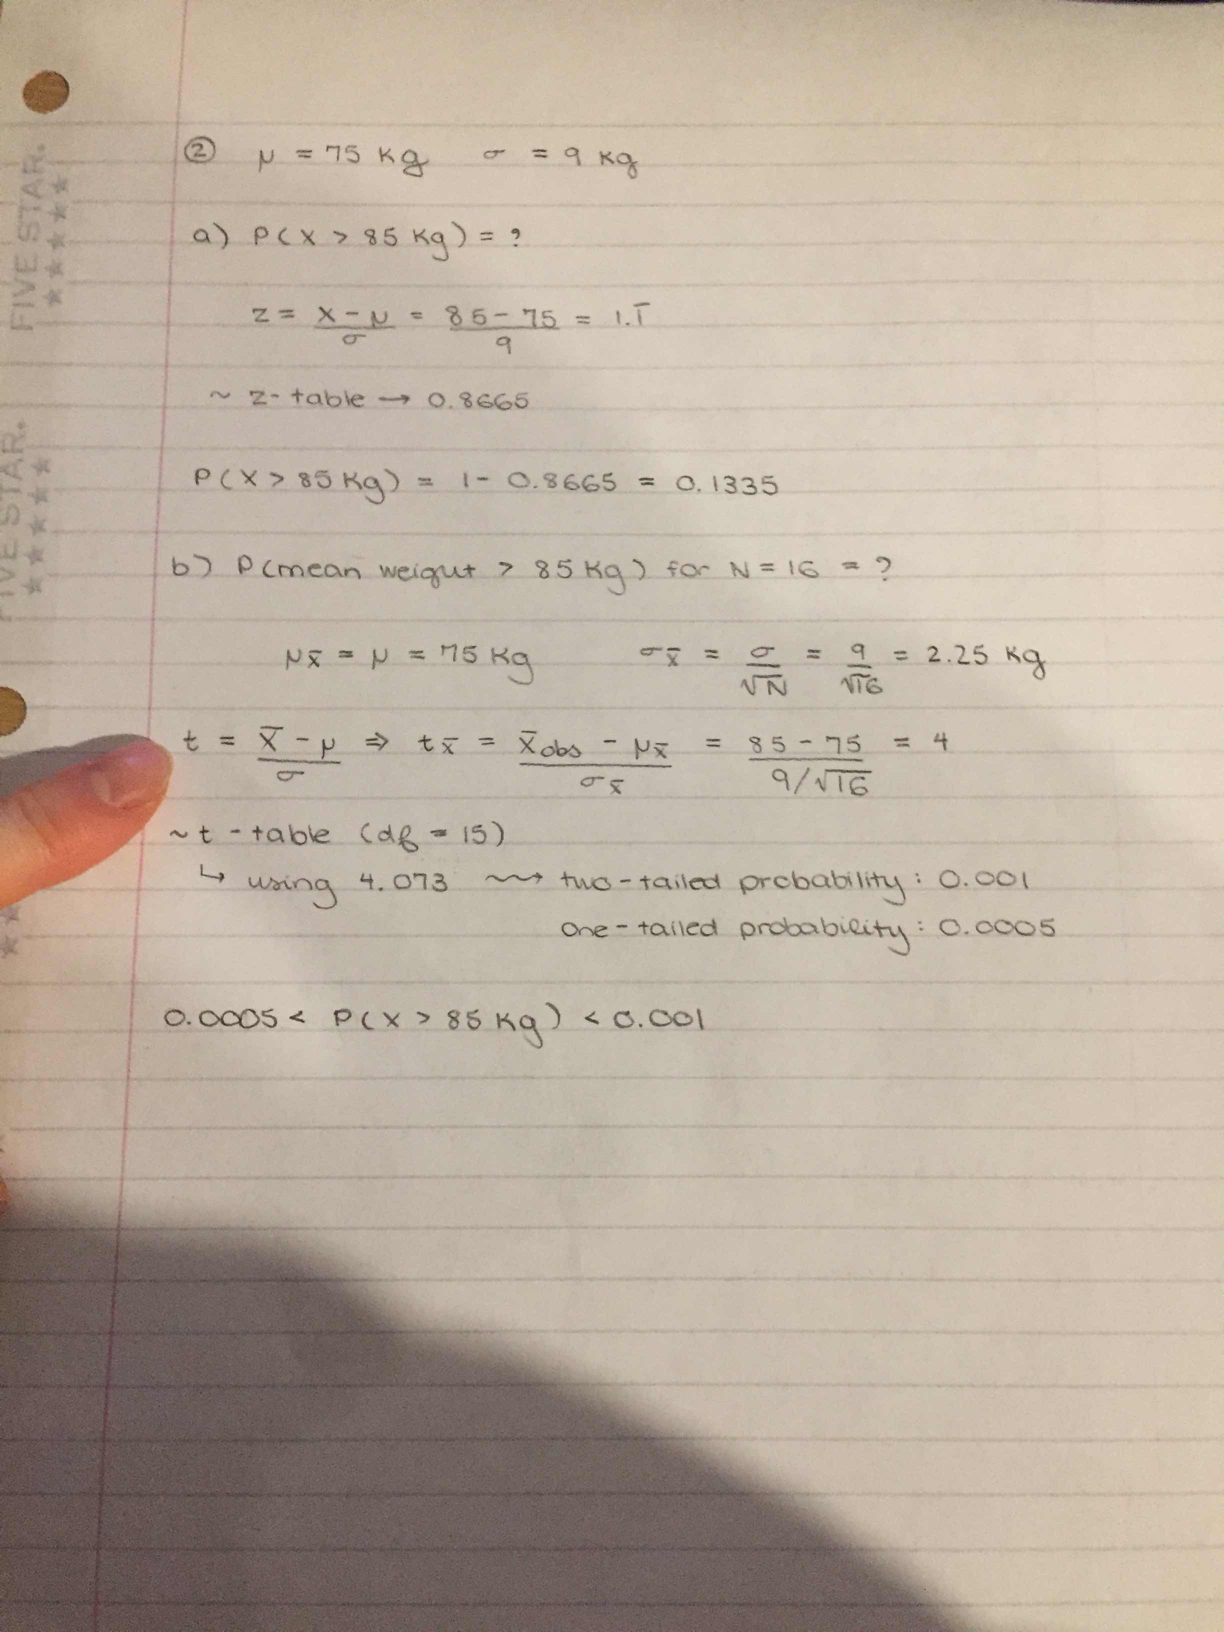 FIVE STAR.
★★★★★
FIVE STAR.
★★★★★
② μ = 75 kg σ = 9 kg
a) P(X > 85 kg) = ?
z = X - μ / σ = 85 - 75 / 9 = 1.1̅
~ z-table → 0.8665
P(X > 85 kg) = 1 - 0.8665 = 0.1335
b) P(mean weigut > 85 kg) for N = 16 = ?
μx̅ = μ = 75 kg σx̅ = σ / √N = 9 / √16 = 2.25 kg
t = X̅ - μ / σ ⇒ tx̅ = X̅obs - μx̅ / σx̅ = 85 - 75 / 9/√16 = 4
~ t-table (df = 15)
↳ using 4.073 ⟿ two-tailed probability: 0.001
one-tailed probability: 0.0005
0.0005 < P(X > 85 kg) < 0.001